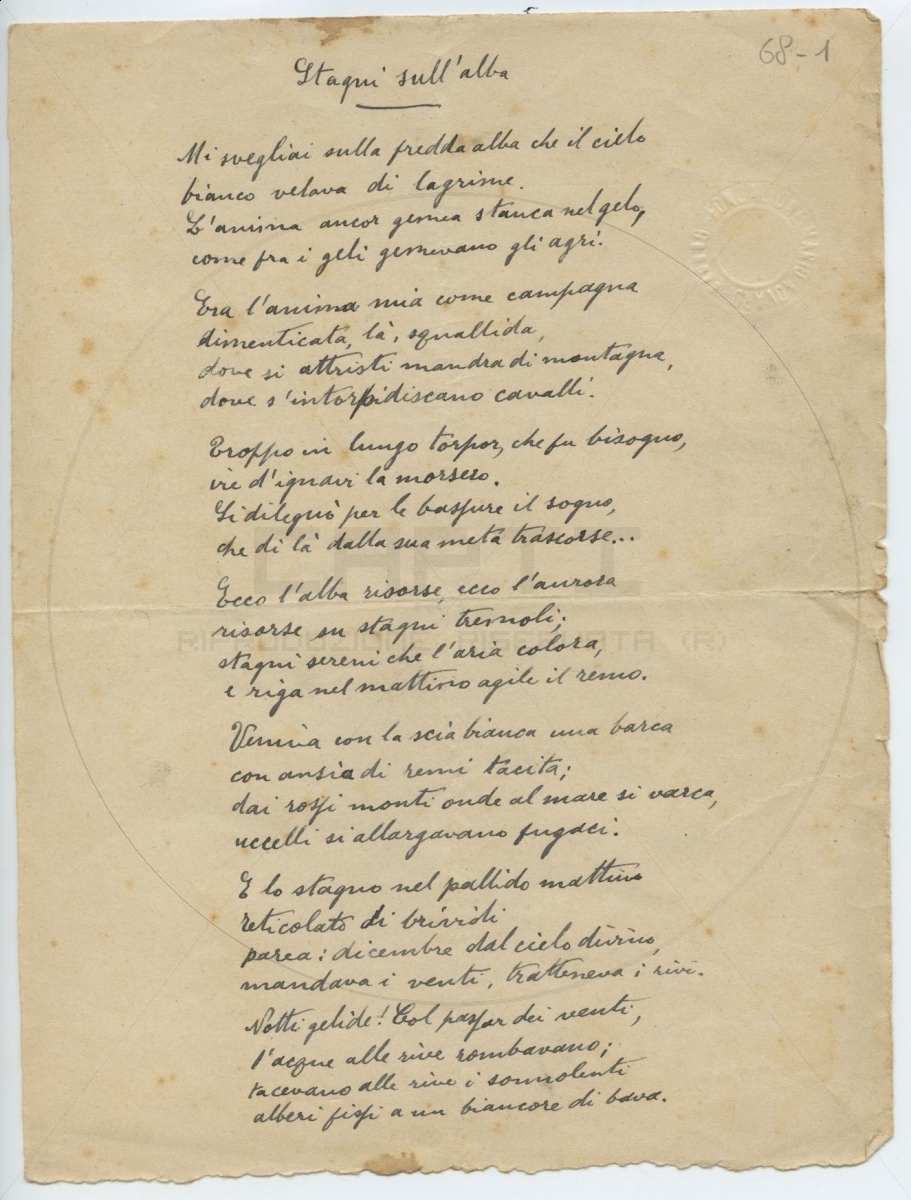 68-1
Stagni sull'alba
Mi svegliai sulla fredda alba che il cielo
bianco velava di lagrime.
L'anima ancor gemea stanca nel gelo,
come fra i geli gemevano gli agri.
Era l'anima mia come campagna
dimenticata, là, squallida,
dove si attristi mandra di montagna,
dove s'intorpidiscano cavalli.
Troppo in lungo torpor, che fu bisogno,
ire d'ignavi la morsero.
Si dileguò per le bassure il sogno,
che di là dalla sua meta trascorse...
Ecco l'alba risorse, ecco l'aurora
risorse su stagni tremoli;
stagni sereni che l'aria colora,
e riga nel mattino agile il remo.
Veniva con la scia bianca una barca
con ansia di remi tacita;
dai rossi monti onde al mare si varca,
uccelli si allargavano fugaci.
E lo stagno nel pallido mattino
reticolato di brividi
parea: dicembre dal cielo divino,
mandava i venti, tratteneva i rivi.
Notti gelide! Col passar dei venti,
l'acque alle rive rombavano;
tacevano alle rive i sonnolenti
alberi fissi a un biancore di bava.
RIPRODUZIONE RISERVATA (R)